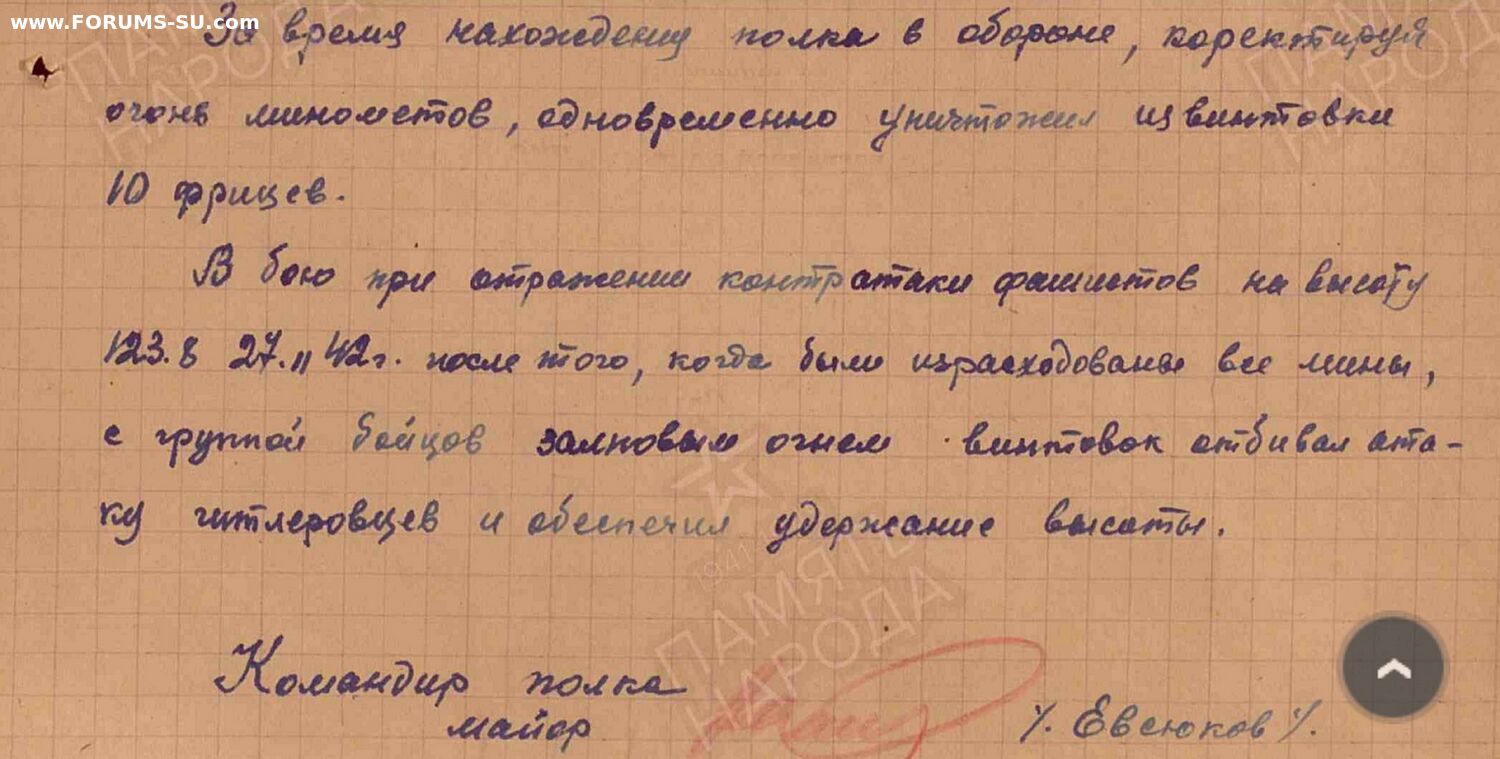 www.FORUMS-SU.com
За время нахождения полка в обороне, коректируя
огонь минометов, одновременно уничтожил из винтовки
10 фрицев.
В бою при отражении контратаки фашистов на высоту
123.8 27.11 42г. после того, когда были израсходованы все мины,
с группой бойцов залповым огнем винтовок отбивал ата-
ку гитлеровцев и обеспечил удержание высоты.
1941
ПАМЯТЬ
НАРОДА
Командир полка
майор /. Евсюков /.